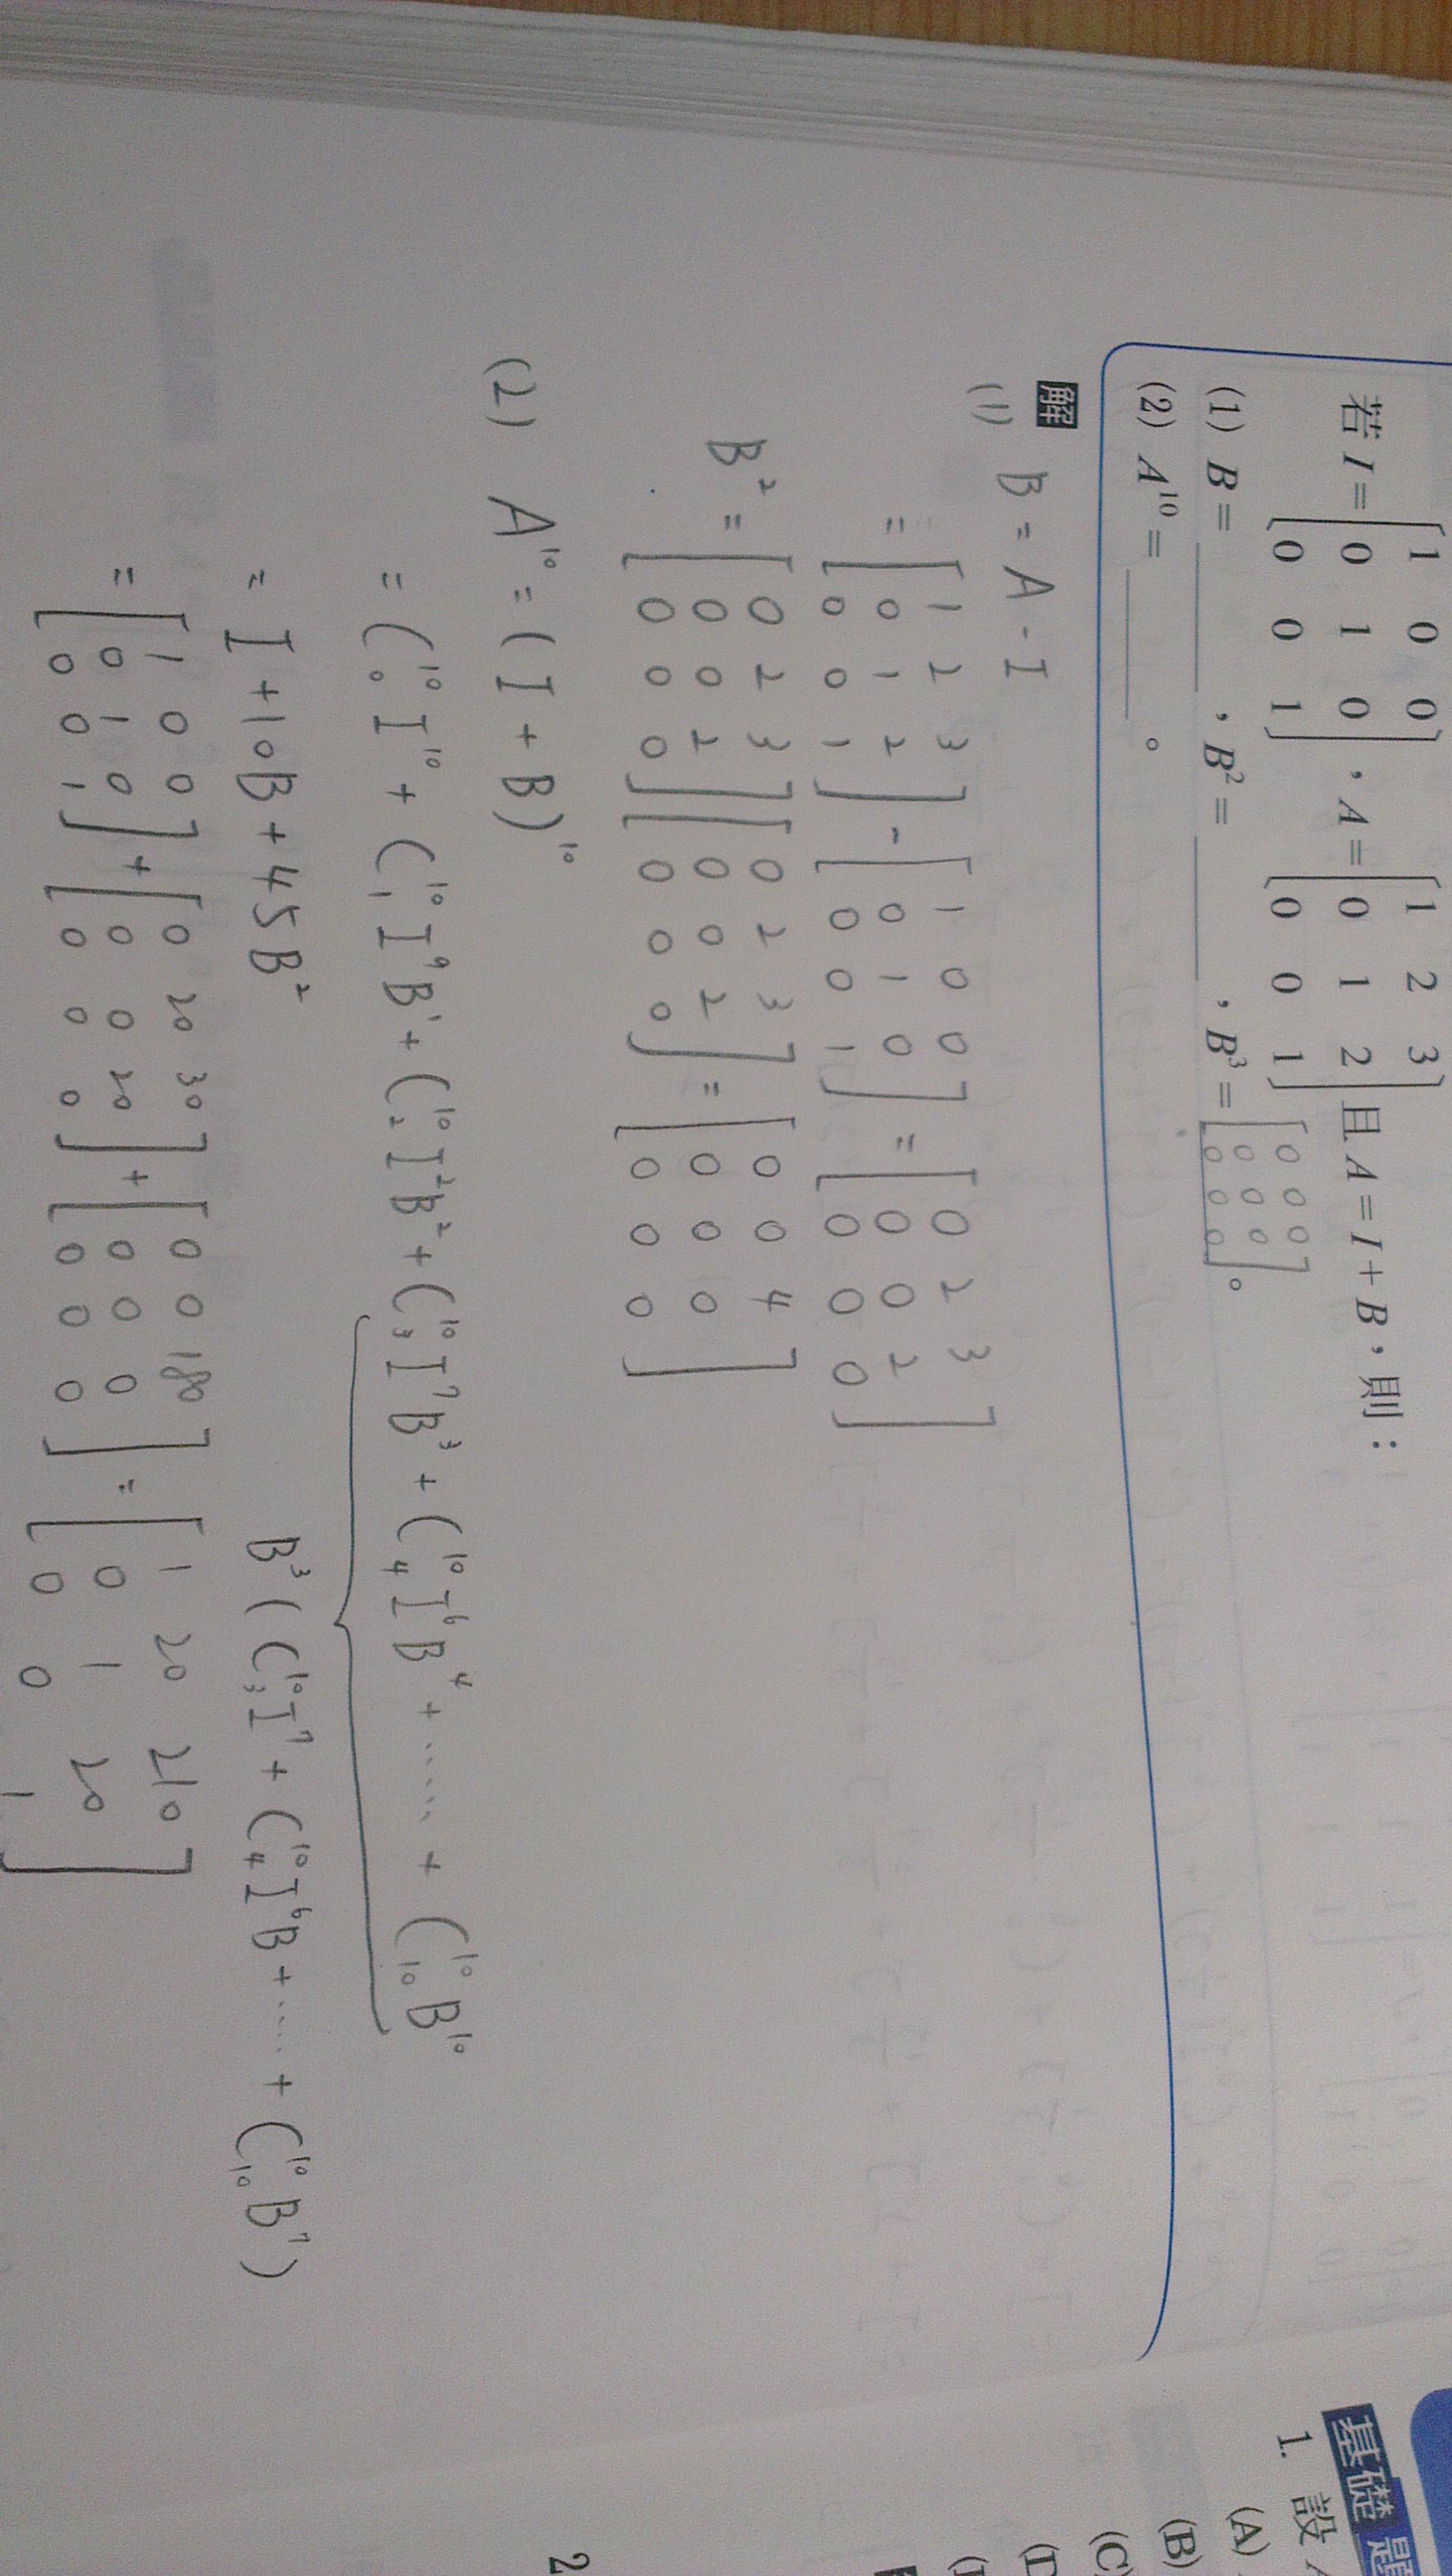 若 I = [1 0 0; 0 1 0; 0 0 1] , A = [1 2 3; 0 1 2; 0 0 1] 且 A = I + B , 則：
(1) B = ______ , B² = ______ , B³ = [0 0 0; 0 0 0; 0 0 0] 。
(2) A¹⁰ = ______ 。
解
(1) B = A - I
= [1 2 3; 0 1 2; 0 0 1] - [1 0 0; 0 1 0; 0 0 1] = [0 2 3; 0 0 2; 0 0 0]
B² = [0 2 3; 0 0 2; 0 0 0][0 2 3; 0 0 2; 0 0 0] = [0 0 4; 0 0 0; 0 0 0]
(2) A¹⁰ = (I + B)¹⁰
= C¹⁰₀ I¹⁰ + C¹⁰₁ I⁹ B¹ + C¹⁰₂ I² B² + C¹⁰₃ I⁷ B³ + C¹⁰₄ I⁶ B⁴ + ..... + C¹⁰₁₀ B¹⁰
= I + 10B + 45B²
B³ ( C¹⁰₃ I⁷ + C¹⁰₄ I⁶ B + .... + C¹⁰₁₀ B⁷ )
= [1 0 0; 0 1 0; 0 0 1] + [0 20 30; 0 0 20; 0 0 0] + [0 0 180; 0 0 0; 0 0 0] = [1 20 210; 0 1 20; 0 0 1]
基礎題
1. 設
(A)
(B)
(C)
2